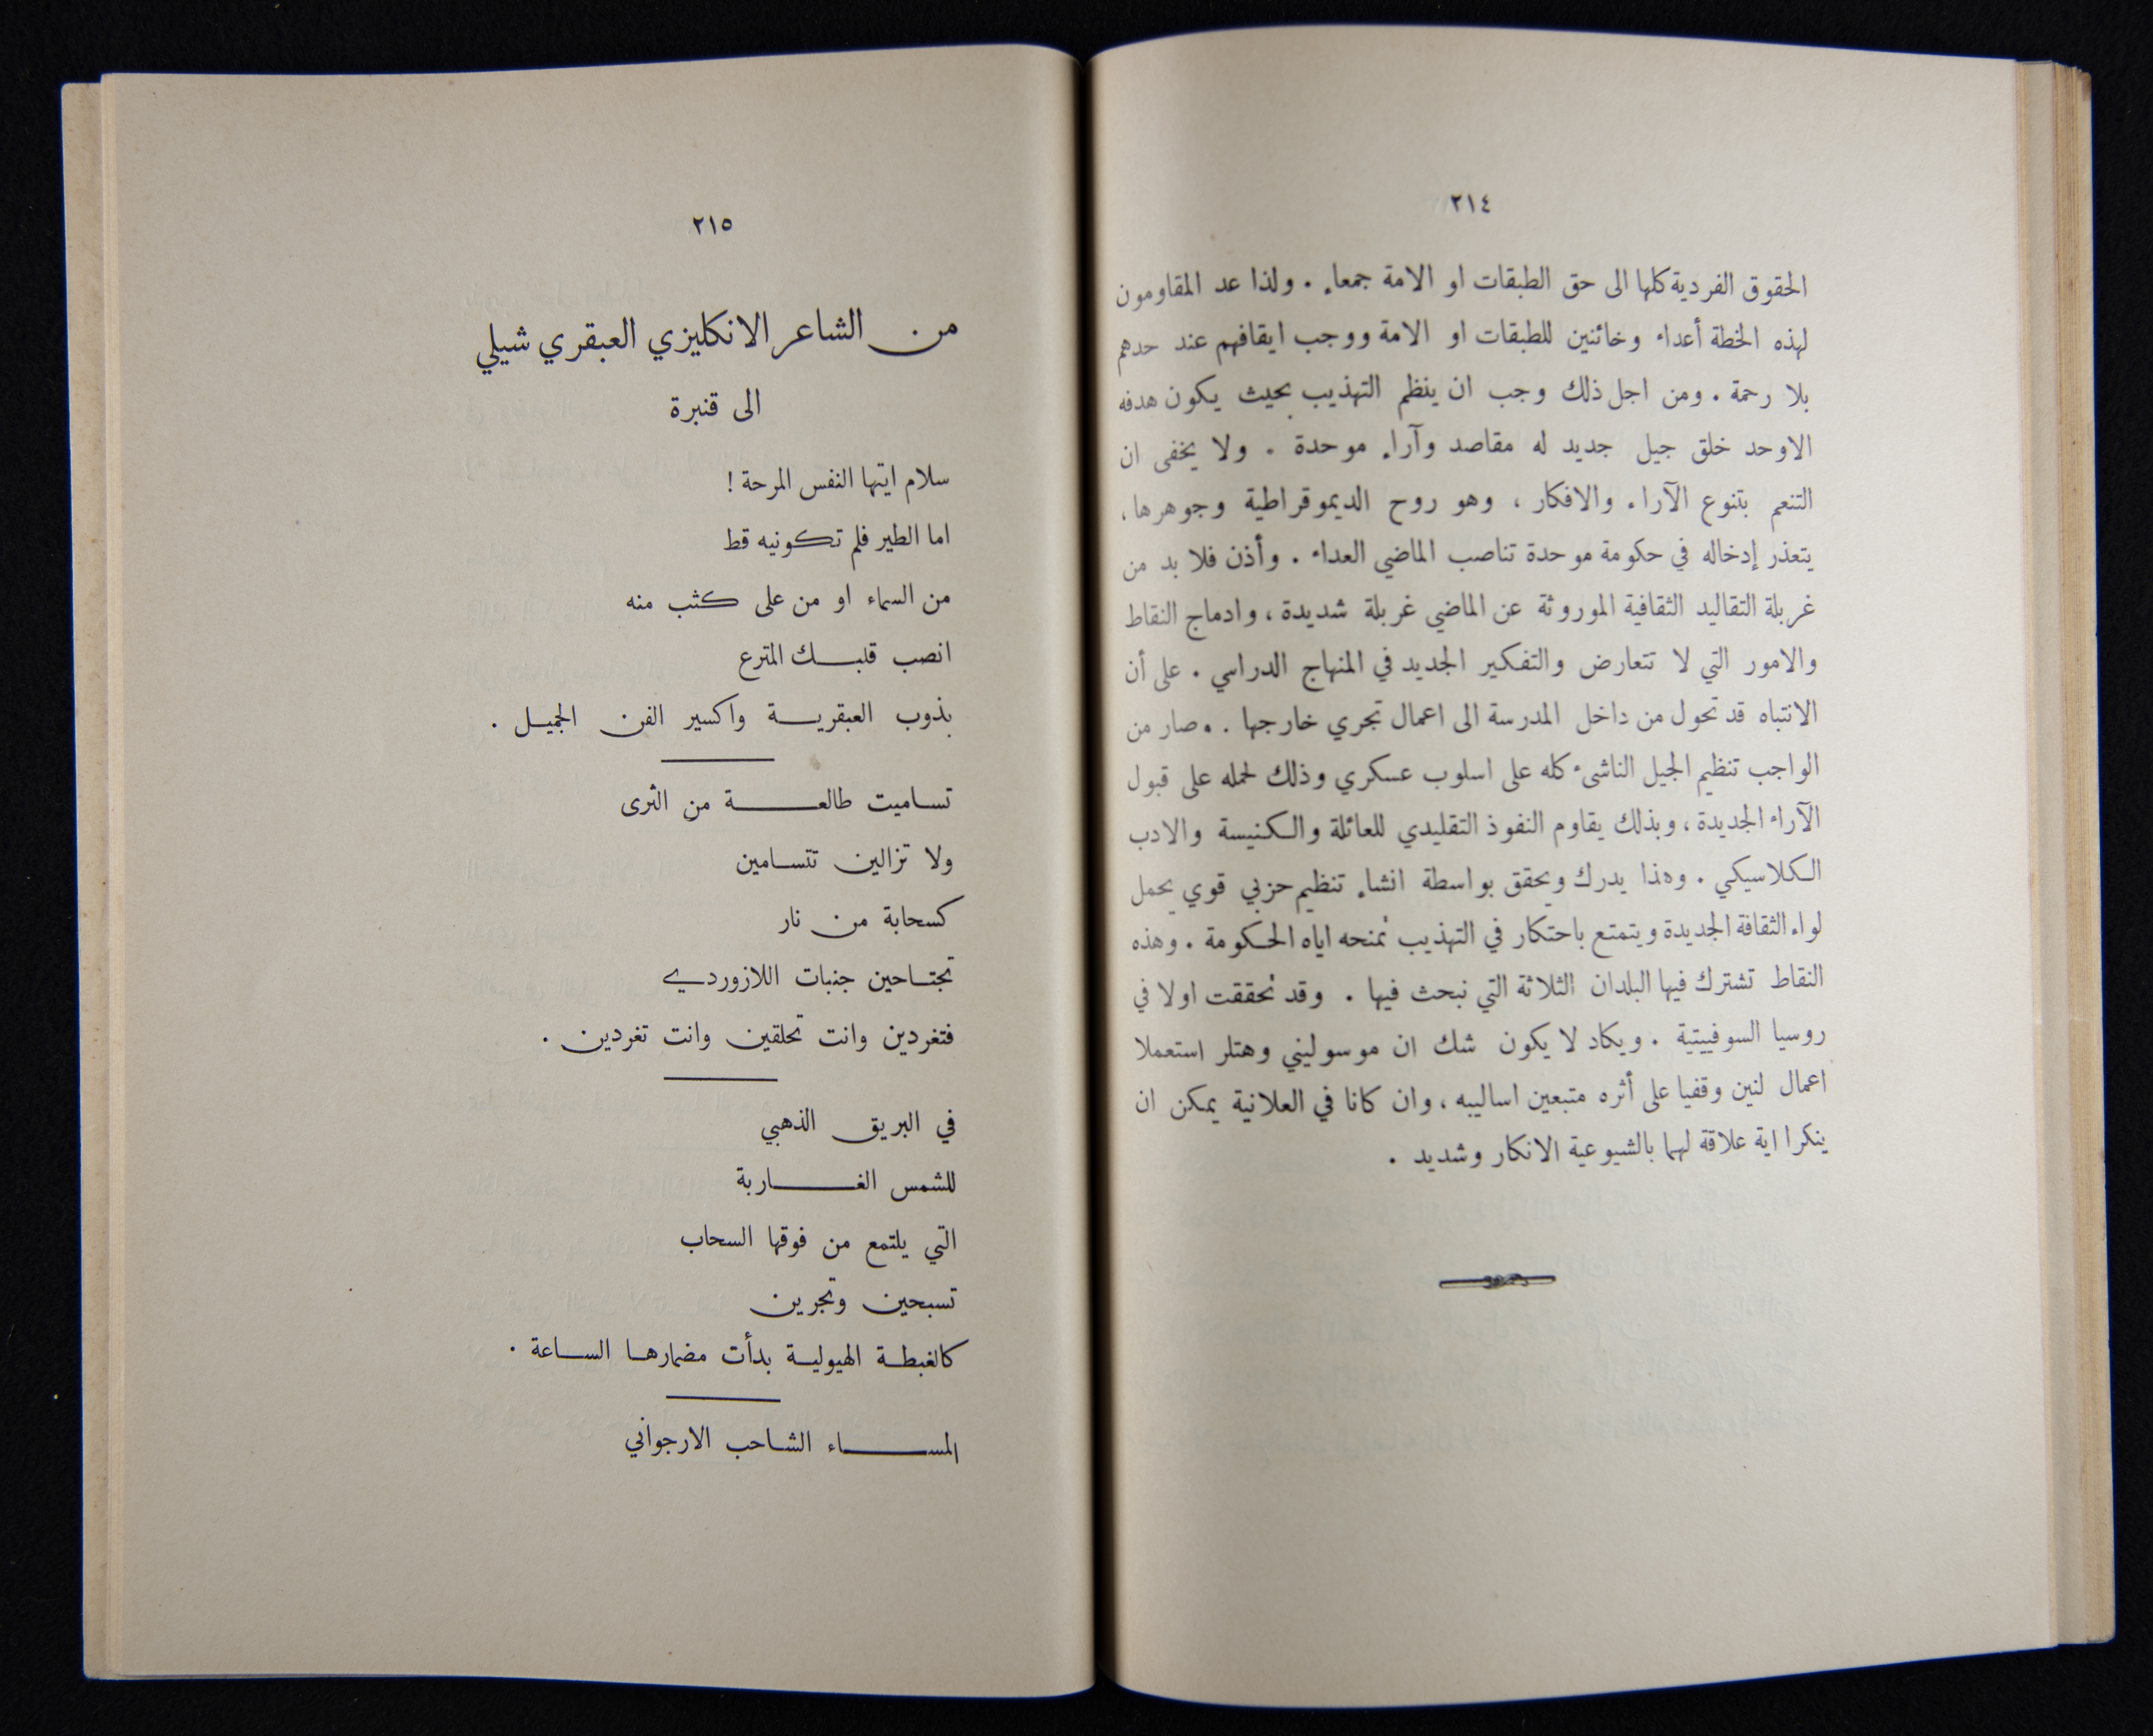 ٢١٤
الحقوق الفردية كلها الى حق الطبقات او الامة جمعاء . ولذا عد المقاومون
لهذه الخطة أعداء وخائنين للطبقات او الامة ووجب ايقافهم عند حدهم
بلا رحمة . ومن اجل ذلك وجب ان ينظم التهذيب بحيث يكون هدفه
الاوحد خلق جيل جديد له مقاصد وآراء موحدة . ولا يخفى ان
التنعم بتنوع الآراء والافكار ، وهو روح الديموقراطية وجوهرها ،
يتعذر إدخاله في حكومة موحدة تناصب الماضي العداء . وأذن فلا بد من
غربلة التقاليد الثقافية الموروثة عن الماضي غربلة شديدة ، وادماج النقاط
والامور التي لا تتعارض والتفكير الجديد في المنهاج الدراسي . على أن
الانتباه قد تحول من داخل المدرسة الى اعمال تجري خارجها . وصار من
الواجب تنظيم الجيل الناشىء كله على اسلوب عسكري وذلك لحمله على قبول
الآراء الجديدة ، وبذلك يقاوم النفوذ التقليدي للعائلة والكنيسة والادب
الكلاسيكي . وهذا يدرك ويحقق بواسطة انشاء تنظيم حزبي قوي يحمل
لواء الثقافة الجديدة ويتمتع باحتكار في التهذيب تمنحه اياه الحكومة . وهذه
النقاط تشترك فيها البلدان الثلاثة التي نبحث فيها . وقد تحققت اولا في
روسيا السوفييتية . ويكاد لا يكون شك ان موسوليني وهتلر استعملا
اعمال لنين وقفيا على أثره متبعين اساليبه ، وان كانا في العلانية يمكن ان
ينكرا اية علاقة لهما بالشيوعية الانكار وشديد .
٢١٥
من الشاعر الانكليزي العبقري شيلي
الى قنبرة
سلام ايتها النفس المرحة !
اما الطير فلم تكونيه قط
من السماء او من على كثب منه
انصب قلبك المترع
بذوب العبقرية واكسير الفن الجميل .
تساميت طالعة من الثرى
ولا تزالين تتسامين
كسحابة من نار
تجتاحين جنبات اللازوردي
فتغردين وانت تحلقين وانت تغردين .
في البريق الذهبي
للشمس الغاربة
التي يلتمع من فوقها السحاب
تسبحين وتجرين
كالغبطة الهيولية بدأت مضمارها الساعة .
المساء الشاحب الارجواني